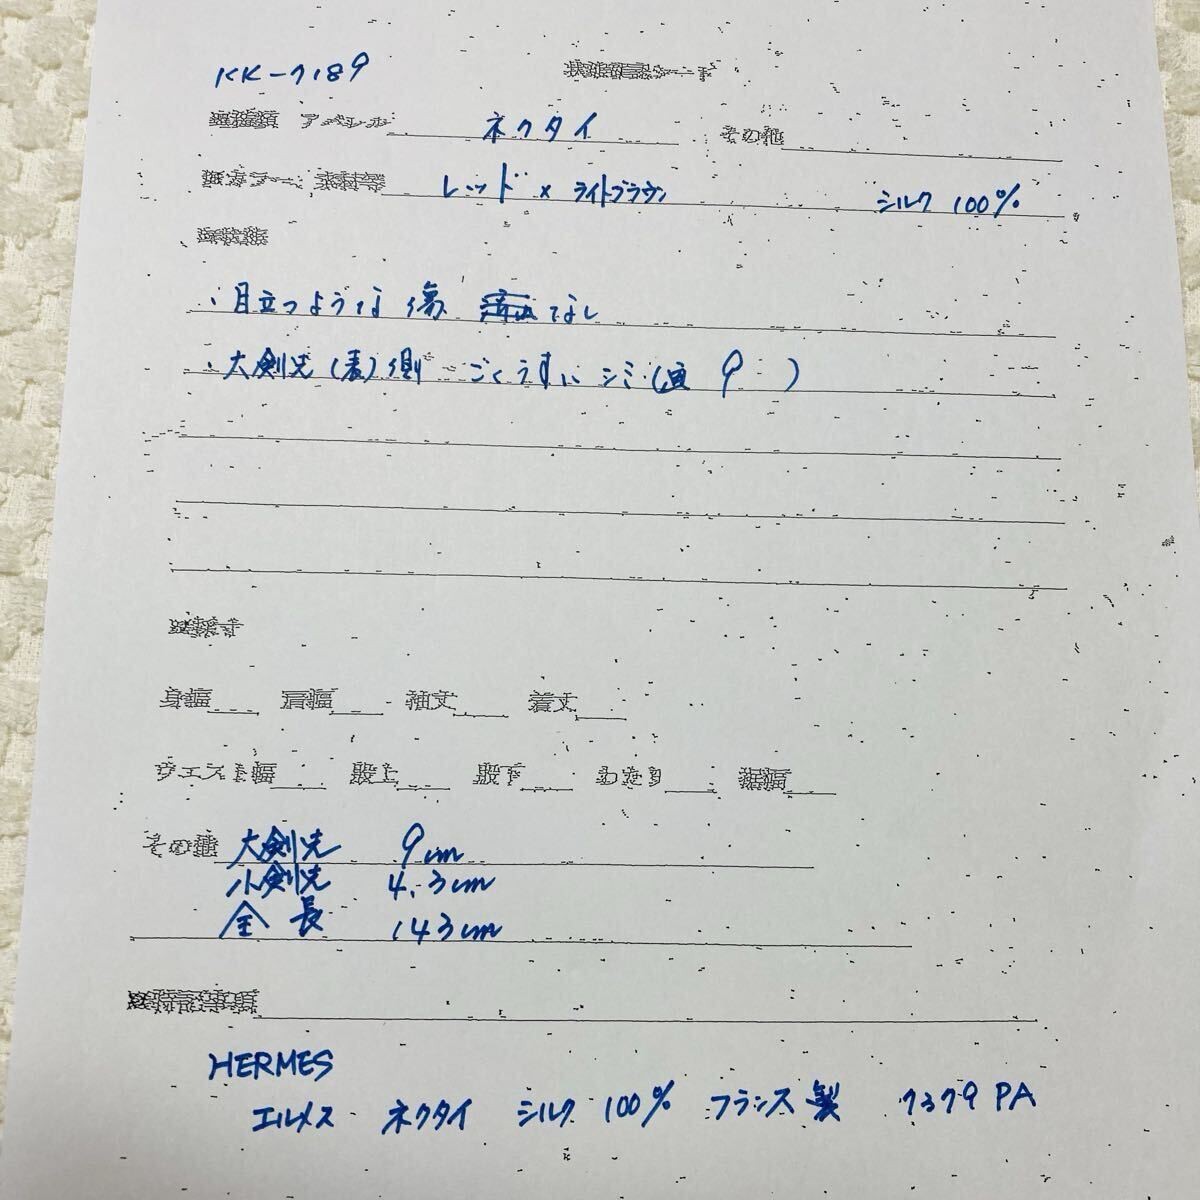 KK-7189
種類 アパレル ネクタイ その他
カラー・素材等 レッド × ライトブラウン シルク 100%
・目立つような傷 なし
・大剣先(表)側 ごくうすいシミ(画 9 )
身幅 肩幅 袖丈 着丈
ウエスト幅 股上 股下 わたり 裾幅
その他 大剣先 9cm
小剣先 4.3cm
全長 143cm
特記事項
HERMES
エルメス ネクタイ シルク 100% フランス製 7379 PA